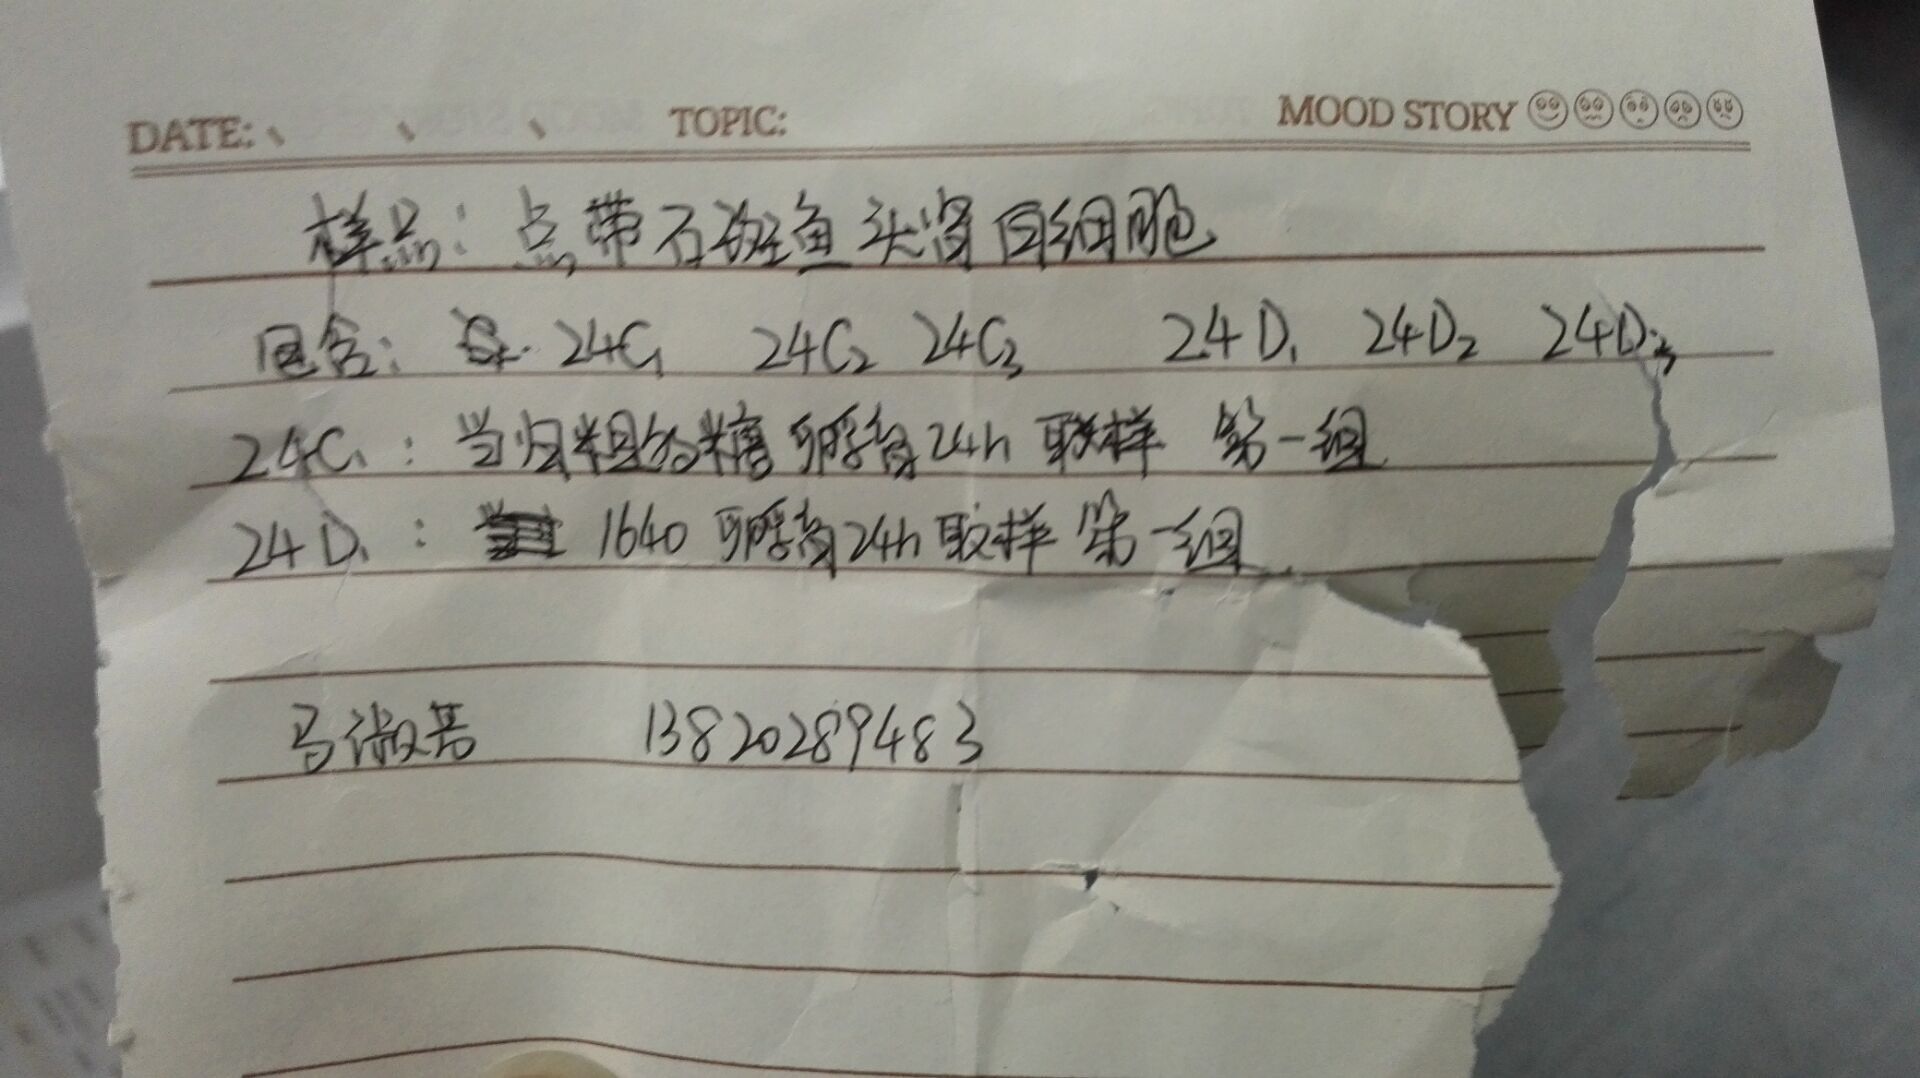 DATE: TOPIC: MOOD STORY
样品：点带石斑鱼头肾白细胞
包含： 24C₁ 24C₂ 24C₃ 24D₁ 24D₂ 24D₃
24C₁：当归粗多糖 孵育24h 取样 第一组
24D₁： 1640 孵育24h 取样 第一组
马淑 13820289483